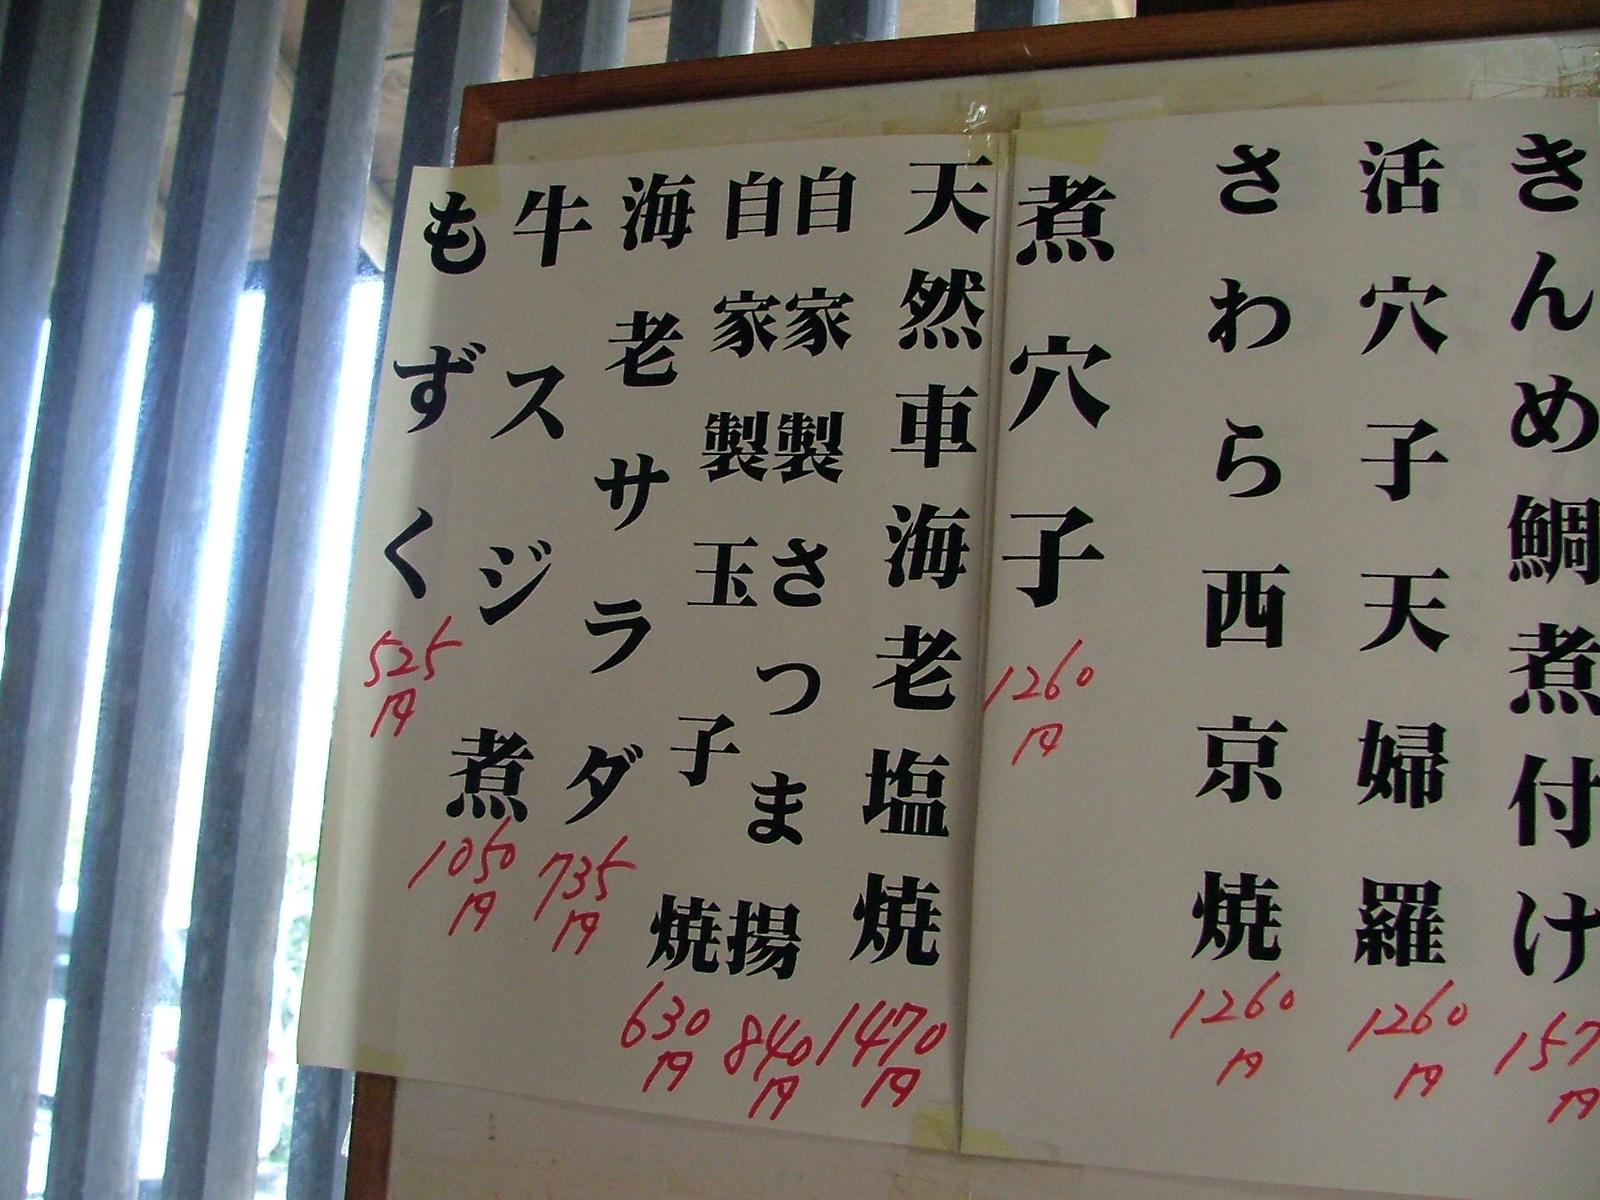 きんめ鯛煮付け 157
円
活穴子天婦羅 1260
円
さわら西京焼 1260
円
煮穴子 1260
円
天然車海老塩焼 1470
円
自家製さつま揚 840
円
自家製玉子焼 630
円
海老サラダ 735
円
牛スジ煮 1050
円
もずく 525
円